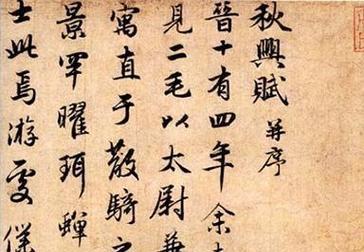 秋興賦并序
晉十有四年余
見二毛以太尉兼
寓直于散騎之
景罕曜珥蟬
士此焉游處僕